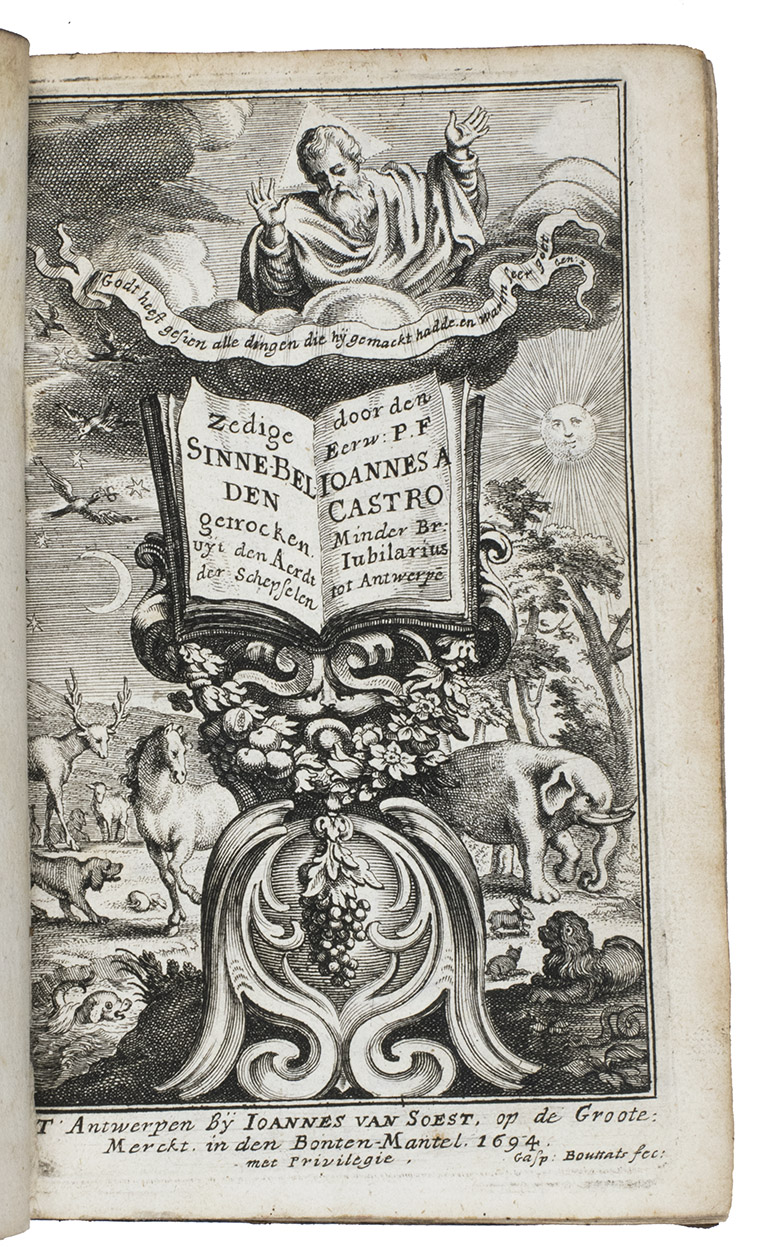 Godt heeft gesien alle dingen die hÿ gemackt hadde. en waeren seer goet
Zedige
SINNE-BEL
DEN
getrocken.
uÿt den Aerdt
der Schepselen
door den
Eerw: P. F
IOANNES A
CASTRO
Minder Br:
Iubilarius
tot Antwerpē
T' Antwerpen Bÿ IOANNES VAN SOEST, op de Groote:
Merckt. in den Bonten-Mantel. 1694.
met Privilegie.
Gasp: Bouttats fec: